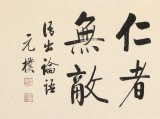 仁者
無敵
語出論語
元樸